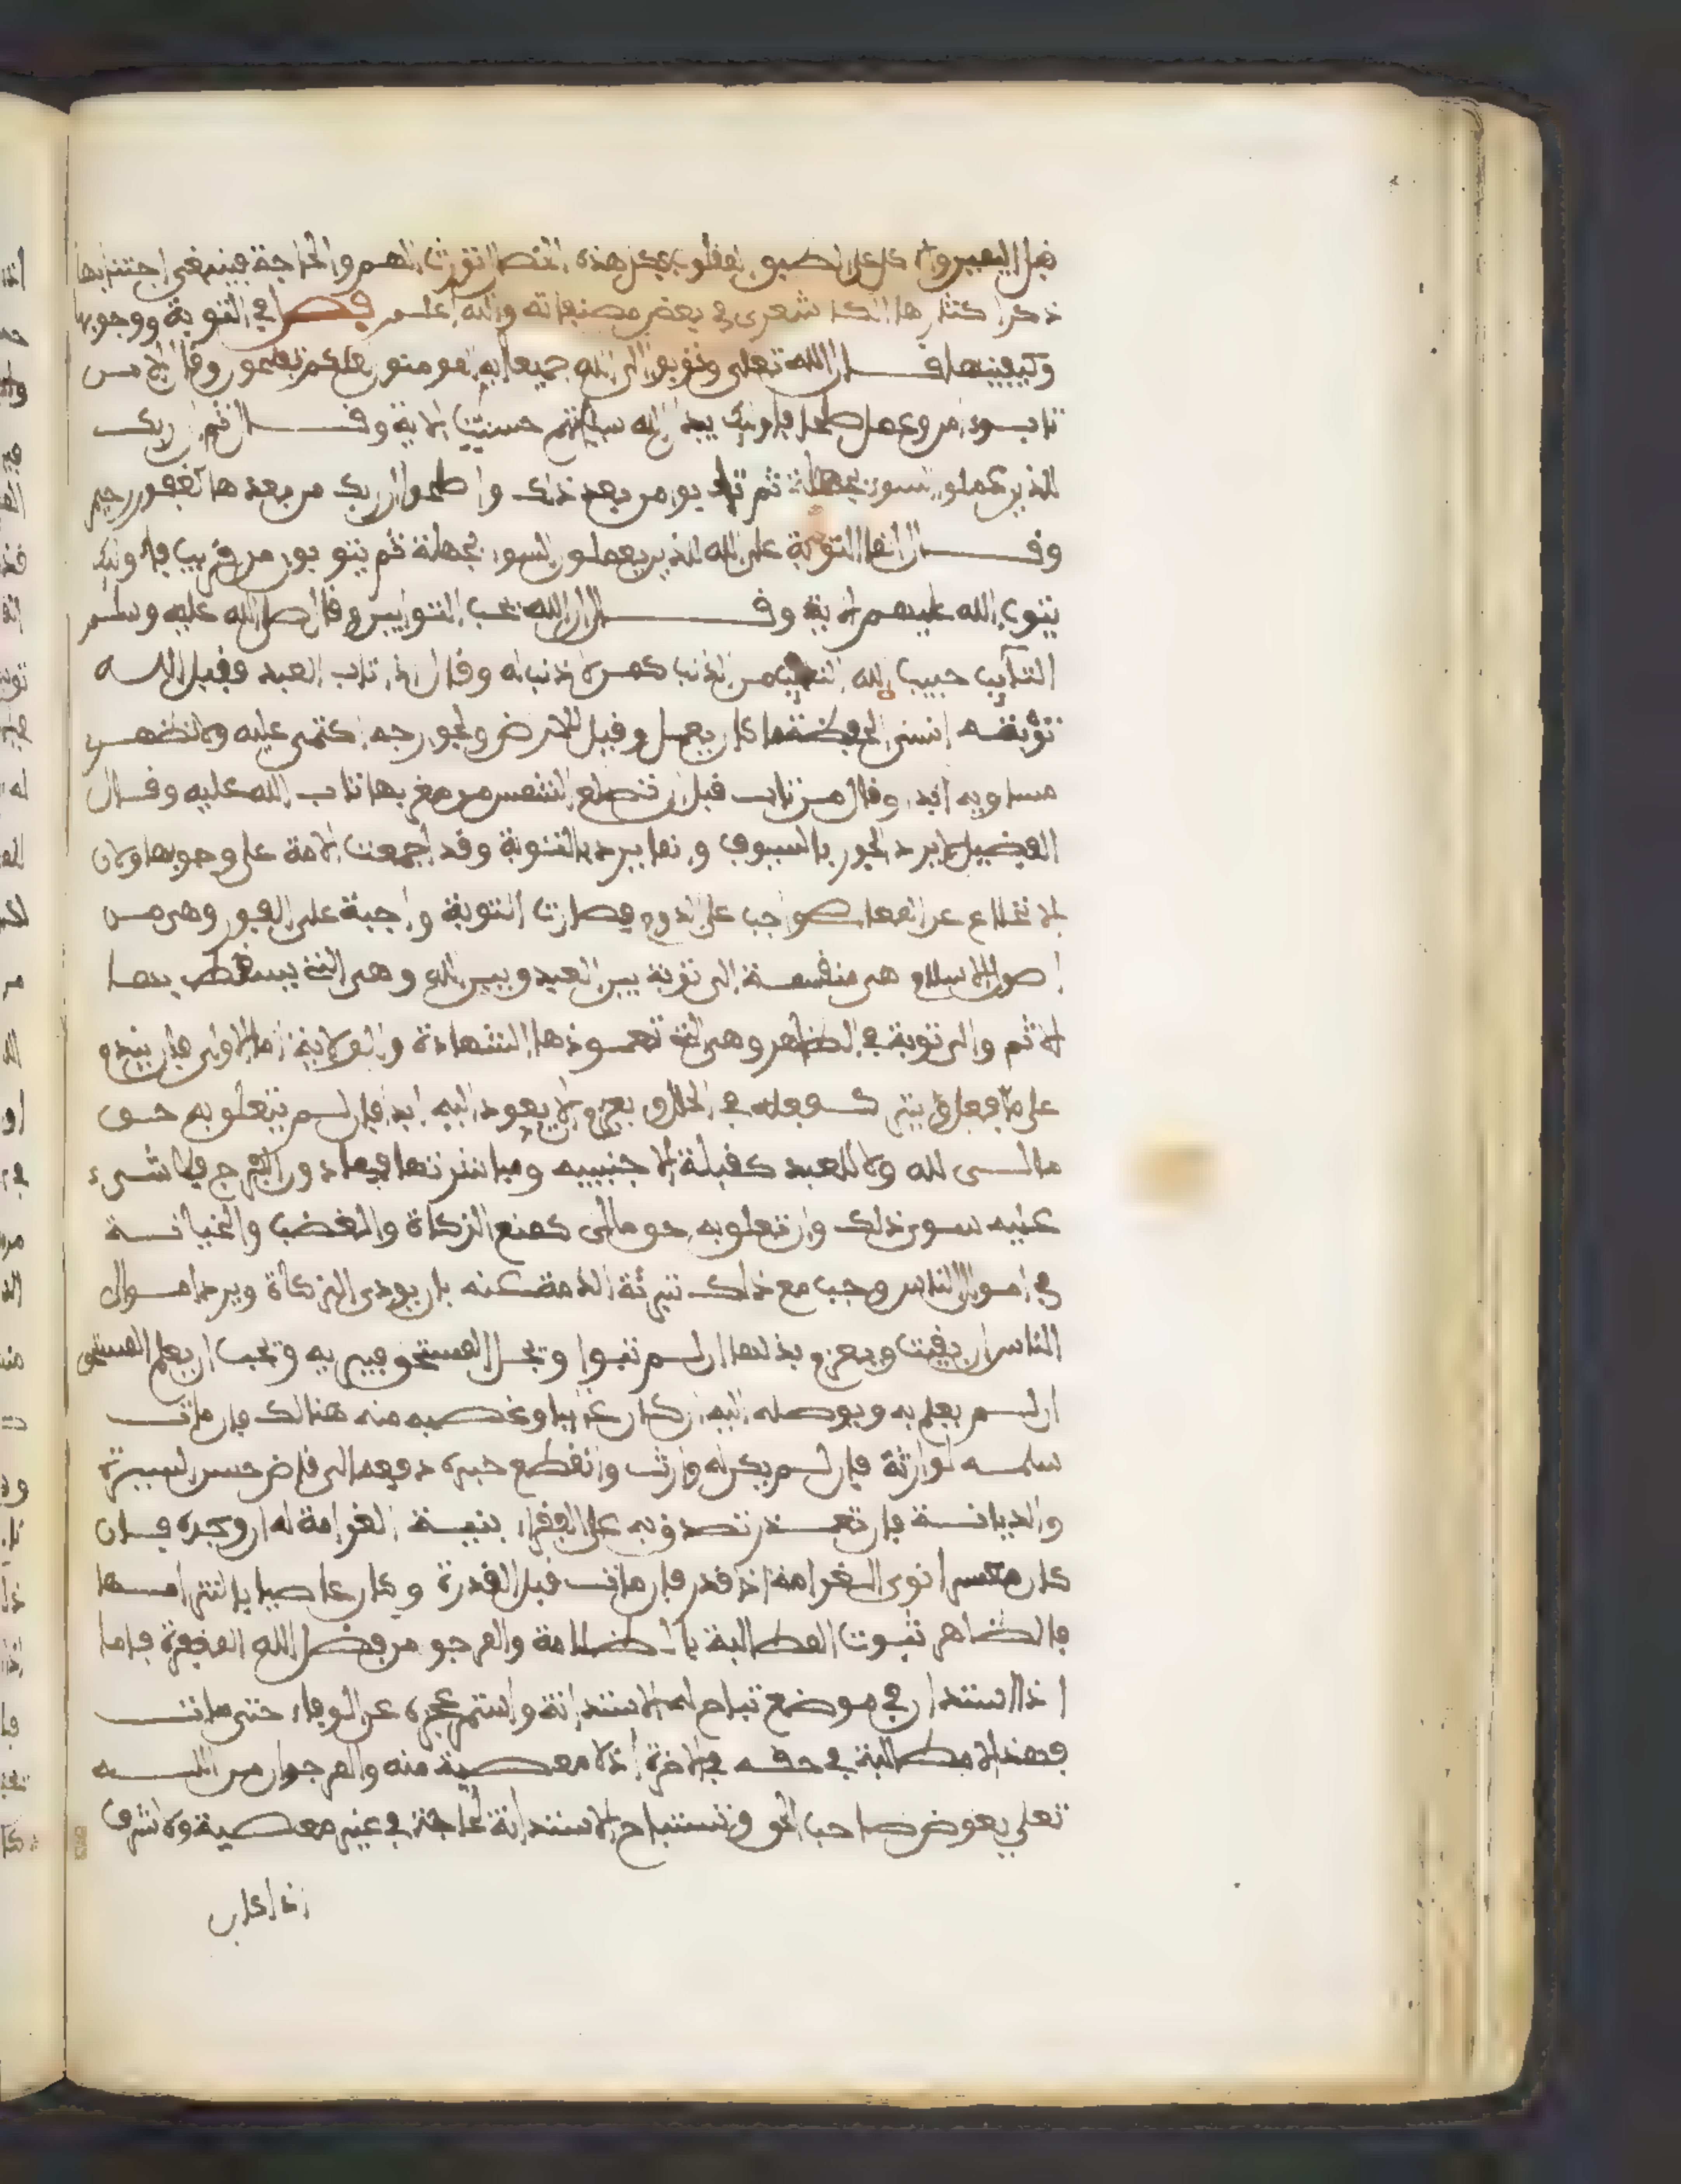 قبل اليمين والاكل على الطبق المقلوب فكل هذه الخصال تورث الهم والحاجة فينبغي اجتنابها
ذكر اكثرها الاشعري في بعض مصنفاته والله اعلم فصل في التوبة ووجوبها
وكيفيتها قال الله تعلى وتوبوا الى الله جميعا ايه المومنون لعلكم تفلحون وقال الا من
تاب وءامن وعمل صلحا فاولئك يبدل الله سيئاتهم حسنت الاية وقال ثم ان ربك
للذين عملوا السوء بجهلة ثم تابوا من بعد ذلك واصلحوا ان ربك من بعدها لغفور رحيم
وقال انما التوبة على الله للذين يعملون السوء بجهلة ثم يتوبون من قريب فاولئك
يتوب الله عليهم الاية وقال ان الله يحب التوابين وقال صلى الله عليه وسلم
التايب حبيب الله التايب من الذنب كمن لا ذنب له وقال اذا تاب العبد وقبل الله
توبته انسى الحفظة ما كان يعمل وقيل للارض ولجوارحه اكتمى عليه ولا تظهر
مساويه ابدا وقال من تاب قبل ان تطلع الشمس من مغربها تاب الله عليه وقال
الفضيل لا يرد الجور بالسيوف وانما يرد بالتوبة وقد اجمعت الامة على وجوبها ولان
الاقلاع عن المعاصي واجب على الدوام فصارت التوبة واجبة على الفور وهي من
اصول الاسلام هي منقسمة الى توبة بين العبد وبين الله وهي التي يسقط بها
الاثم والى توبة في الظاهر وهي التي تعود بها الشهادة والولاية اما الاولى فان يندم
على ما فعل ويترك فعله في الحال ويعزم الا يعود اليه ابدا فان لم يتعلق به حق
مالى لله ولا للعبد كقبلة الاجنبيه ومباشرتها فيما دون الفرج فلا شيء
عليه سوى ذلك وان تعلق به حق مالى كمنع الزكاة والغضب والخيانة
في اموال الناس وجب مع ذلك تبرئة الذمة عنه بان يودى الزكاة ويرد اموال
الناس ان بقيت ويغرم بدلها ان لم تبق او يحل المستحق فيبريه ويجب ان يعلم المستحق
ان لم يعلم به ويوصله اليه ان كان غايبا وغصبه منه هنالك فان مات
سلمه لوارثه فان لم يكن له وارث وانقطع خبره دفعه الى قاض حسن السيرة
والديانة فان تعذر تصدق به على الفقراء بنية الغرامة له ان وجده فان
كان معسرا نوى الغرامة اذا قدر فان مات قبل القدرة وكان عاصيا بالتزامها
فالظاهر ثبوت المطالبة بالظلامة والمرجو من فضل الله المغفرة فاما
اذا استدان في موضع تباح له الاستدانة واستمر عجزه عن الوفاء حتى مات
فهذا لا مطالبة في حقه في الاخرة اذ لا معصية منه والمرجو ان من الله
تعلى يعوض صاحب الحق وتستباح الاستدانة لحاجة في غير معصية ولا شرف
اذا كان